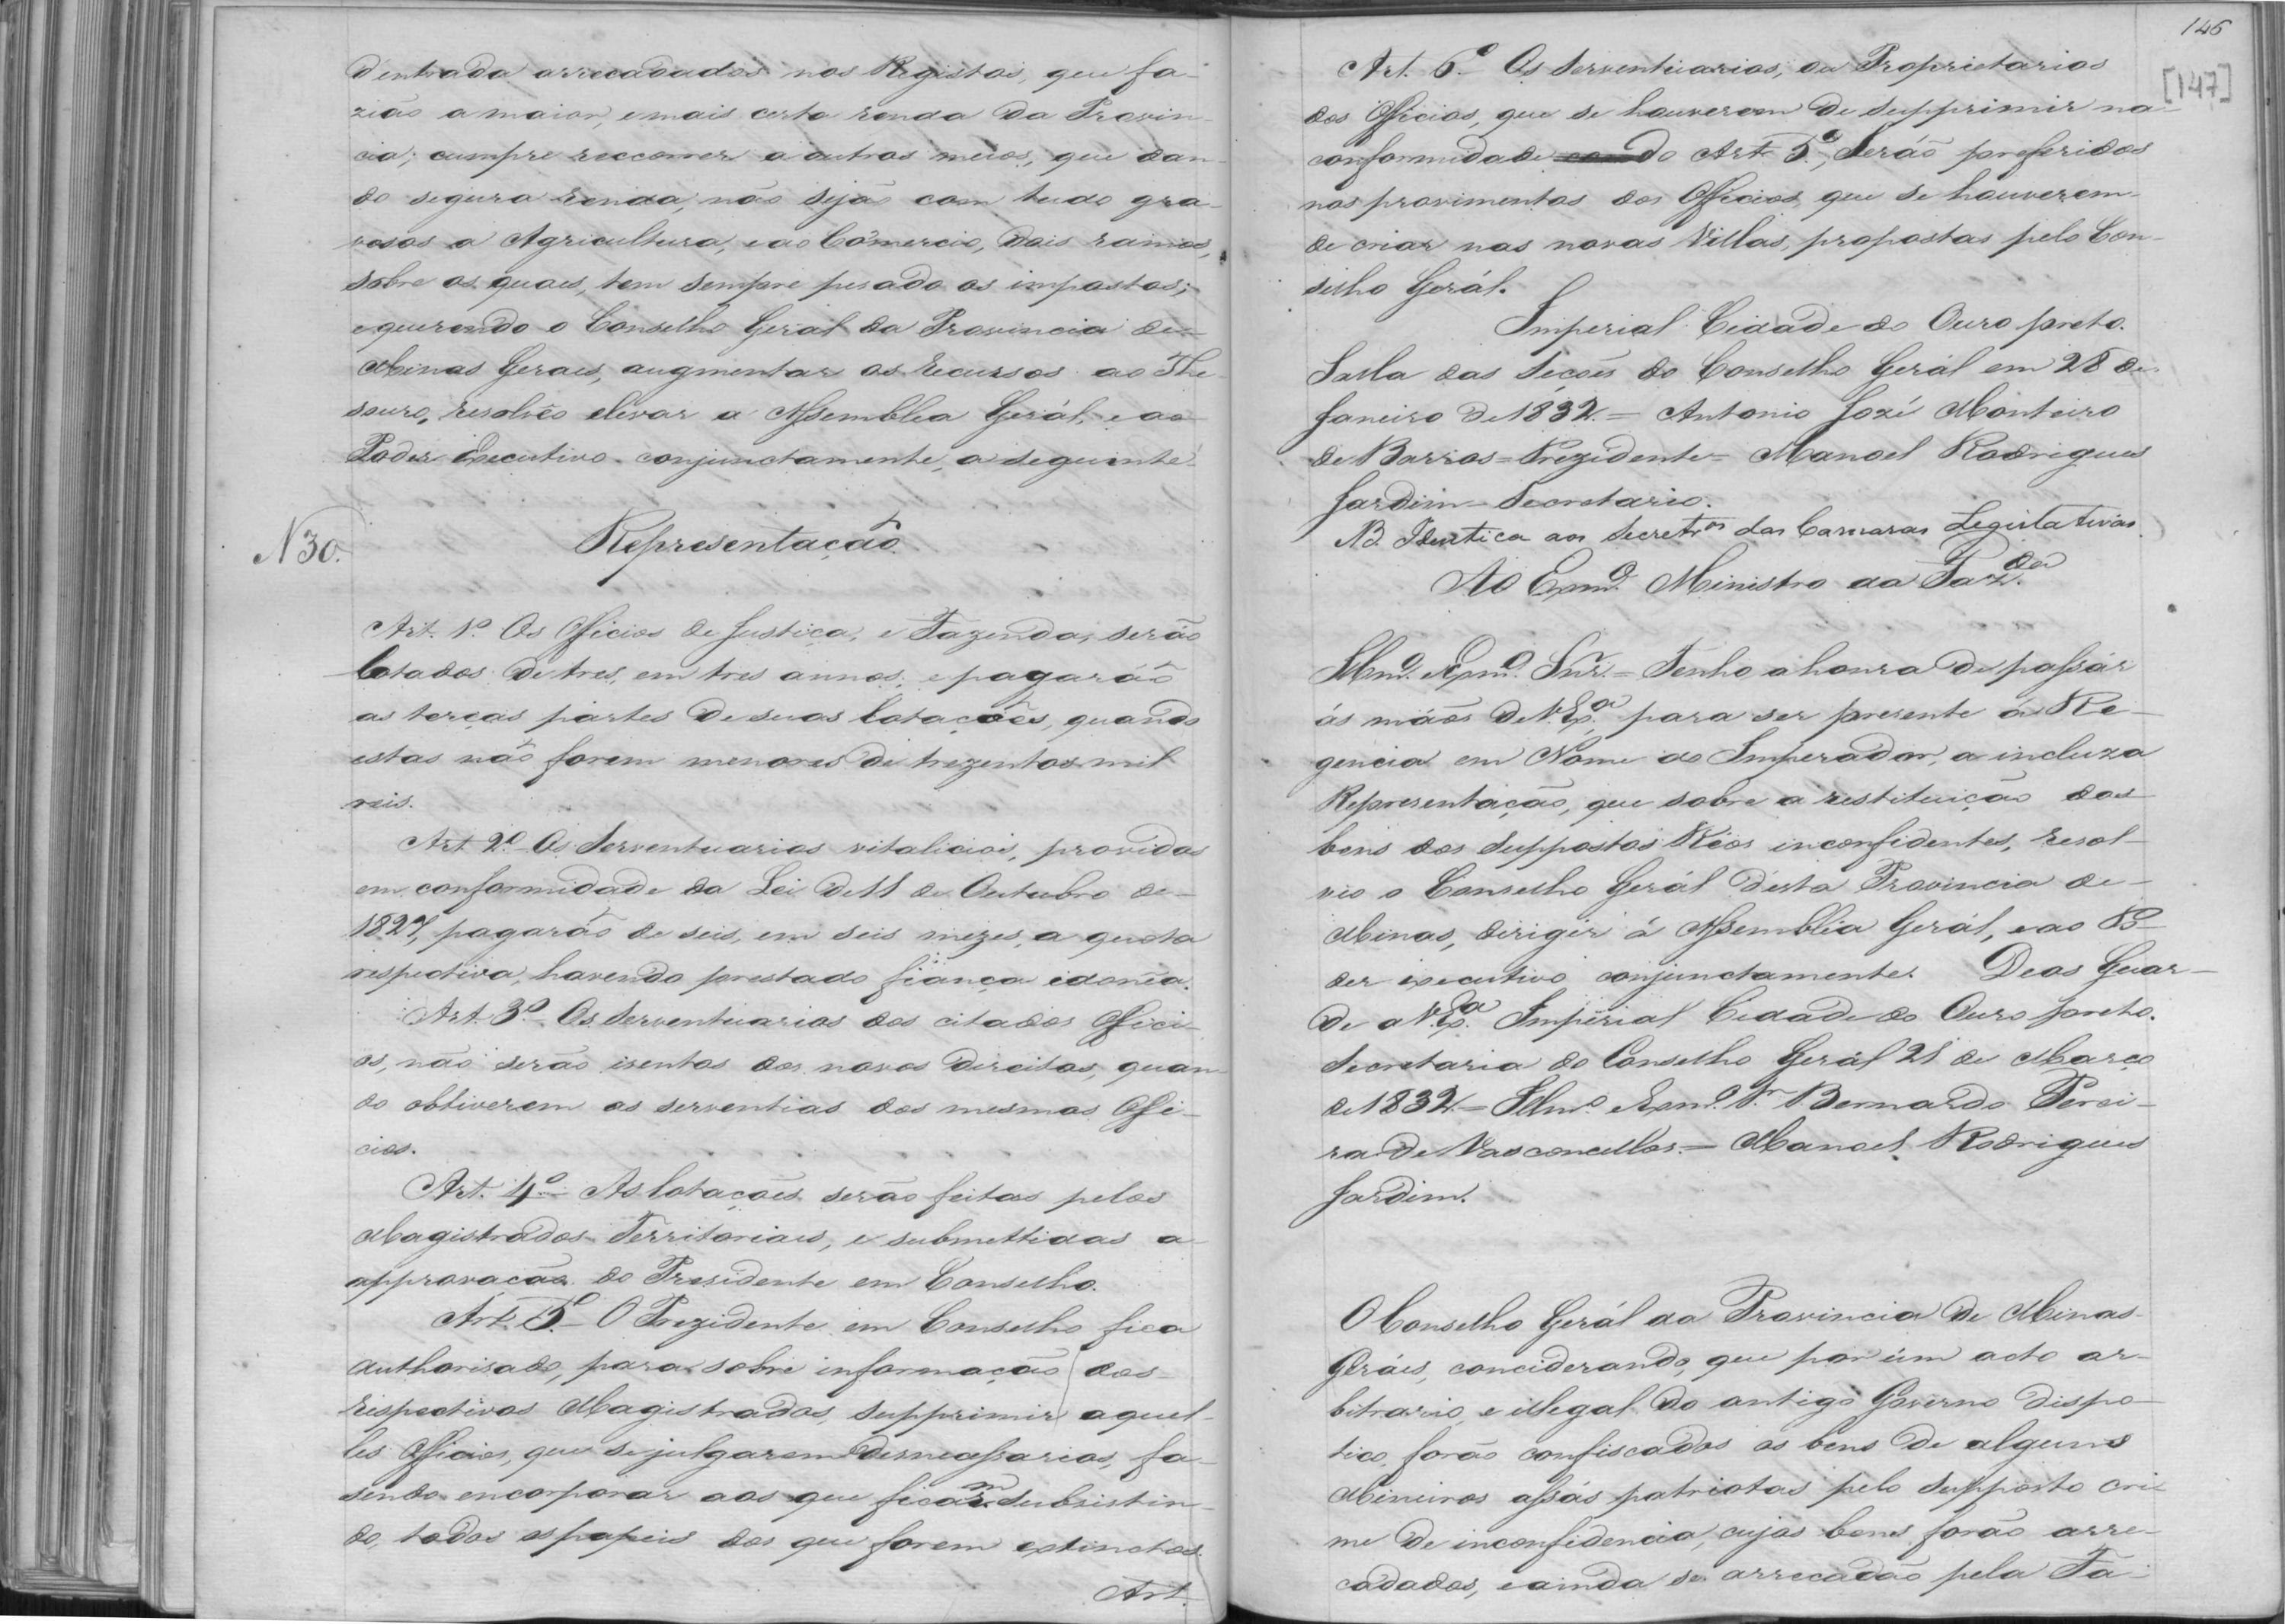 d'entrada arrecadados nos Registos, que fa-
zião a maior, e mais certa renda da Provin-
cia; cumpre reccorrer a outros meios, que dan-
do segura renda, não sejão com tudo gra-
vosos a Agricultura, e ao Cômercio, dois ramos,
sobre os quaes, tem sempre pesado os impostos;
e querendo o Conselho Geral da Provincia de
Minas Geraes, augmentar os recursos ao The-
souro, resolvêo elevar a Assemblea Gerál, e ao
Poder Executivo conjunctamente, a seguinte
N 30.
Representação
Art. 1º Os Officios de Justiça, e Fazenda, serão
lotados de tres, em tres annos, e pagaráõ
as terças partes de suas lotações, quando
estas não forem menores de trezentos mil
reis.
Art. 2º Os Serventuarios vitalicios, providos
em conformidade da Lei de 11 de Outubro de
1827, pagarão de seis, em seis mezes, a quota
respectiva, havendo prestado fiança idonea.
Art. 3º Os Serventuarios dos citados Offici-
os, não serão isentos dos novos direitos, quan-
do obtiverem as serventias dos mesmos Offi-
cios.
Art. 4º As lotações serão feitas pelos
Magistrados Territoriaes, e submettidas a
approvação do Presidente em Conselho.
Art. 5º O Prezidente em Conselho fica
authorisado, para sobre informação dos
respectivos Magistrados, supprimir aquel-
les Officios, que se julgarem desnecessarios, fa-
sendo encorporar aos que ficarem subsistin-
do, todos os papeis dos que forem extinctos.
Art.
146
[147]
Art. 6º Os Serventuarios, ou Proprietarios
dos Officios, que se houverem de supprimir na
conformidade do Art. 5º, Serão preferidos
nos provimentos dos Officios, que se houverem
de criar nas novas Villas, propostas pelo Con-
selho Gerál.
Imperial Cidade do Ouro preto.
Salla das Seções do Conselho Gerál em 28 de
Janeiro de 1832 = Antonio Jozé Monteiro
de Barros = Prezidente = Manoel Rodrigues
Jardim - Secretario.
NB. Identica aos Secretros das Camaras Legislativas
Ao Exmo. Ministro da Fazda.
Illmo. e Exmo. Snr. = Tenho a honra de passár
ás mãos de V. Exa. para ser presente á Re-
gencia em Nome do Imperador, a incluza
Representação, que sobre a restituição dos
bens dos suppostos Réos inconfidentes, resol-
veo o Conselho Gerál d'esta Provincia de
Minas, dirigir á Assembléa Gerál, e ao Po-
der executivo conjunctamente. Deos Guar-
de a V. Exa. Imperial Cidade do Ouro preto.
Secretaria do Conselho Gerál 21 de Março
de 1832 = Illmo. e Exmo. Sr. Bernardo Perei-
ra de Vasconcellos. = Manoel Rodrigues
Jardim.
O Conselho Gerál da Provincia de Minas
Geráes, conciderando, que por um acto ar-
bitrario, e illegal do antigo Governo dispo-
tico, forão confiscados os bens de alguns
Mineiros assás patriotas pelo supposto cri-
me de inconfidencia, cujos bens forão arre-
cadados, e ainda se arrecadão pela Fa-